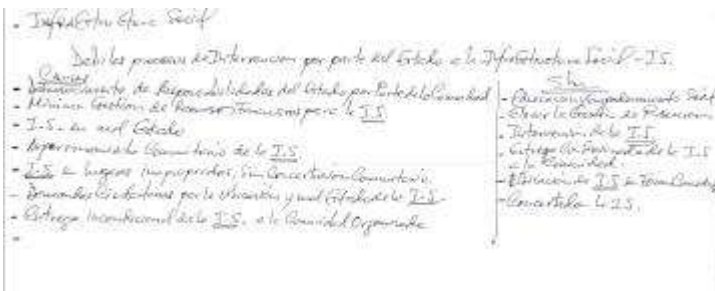 - Infraestructura Social
Debiles procesos de Intervencion por parte del Estado a la Infraestructura Social - I.S.
Causas
- Desconocimiento de Responsabilidades del Estado por Parte de la Comunidad
- Minima Gestion de Recursos Financieros para la I.S
- I.S. en mal Estado
- Comunitario de la I.S.
- I.S en lugares inapropiados, Sin Concertacion Comunitaria.
- Demandas Ciudadanas por la Ubicación y mal Estado de la I.S.
- Entrega incondicional de la I.S. a la Comunidad Organizada
-
- Educacion Social
- Elevar la Gestion de Recursos
- Intervencion de la I.S.
- Entrega de la I.S
a la Comunidad.
- Ubicacion de I.S en
- Concertada L I.S.